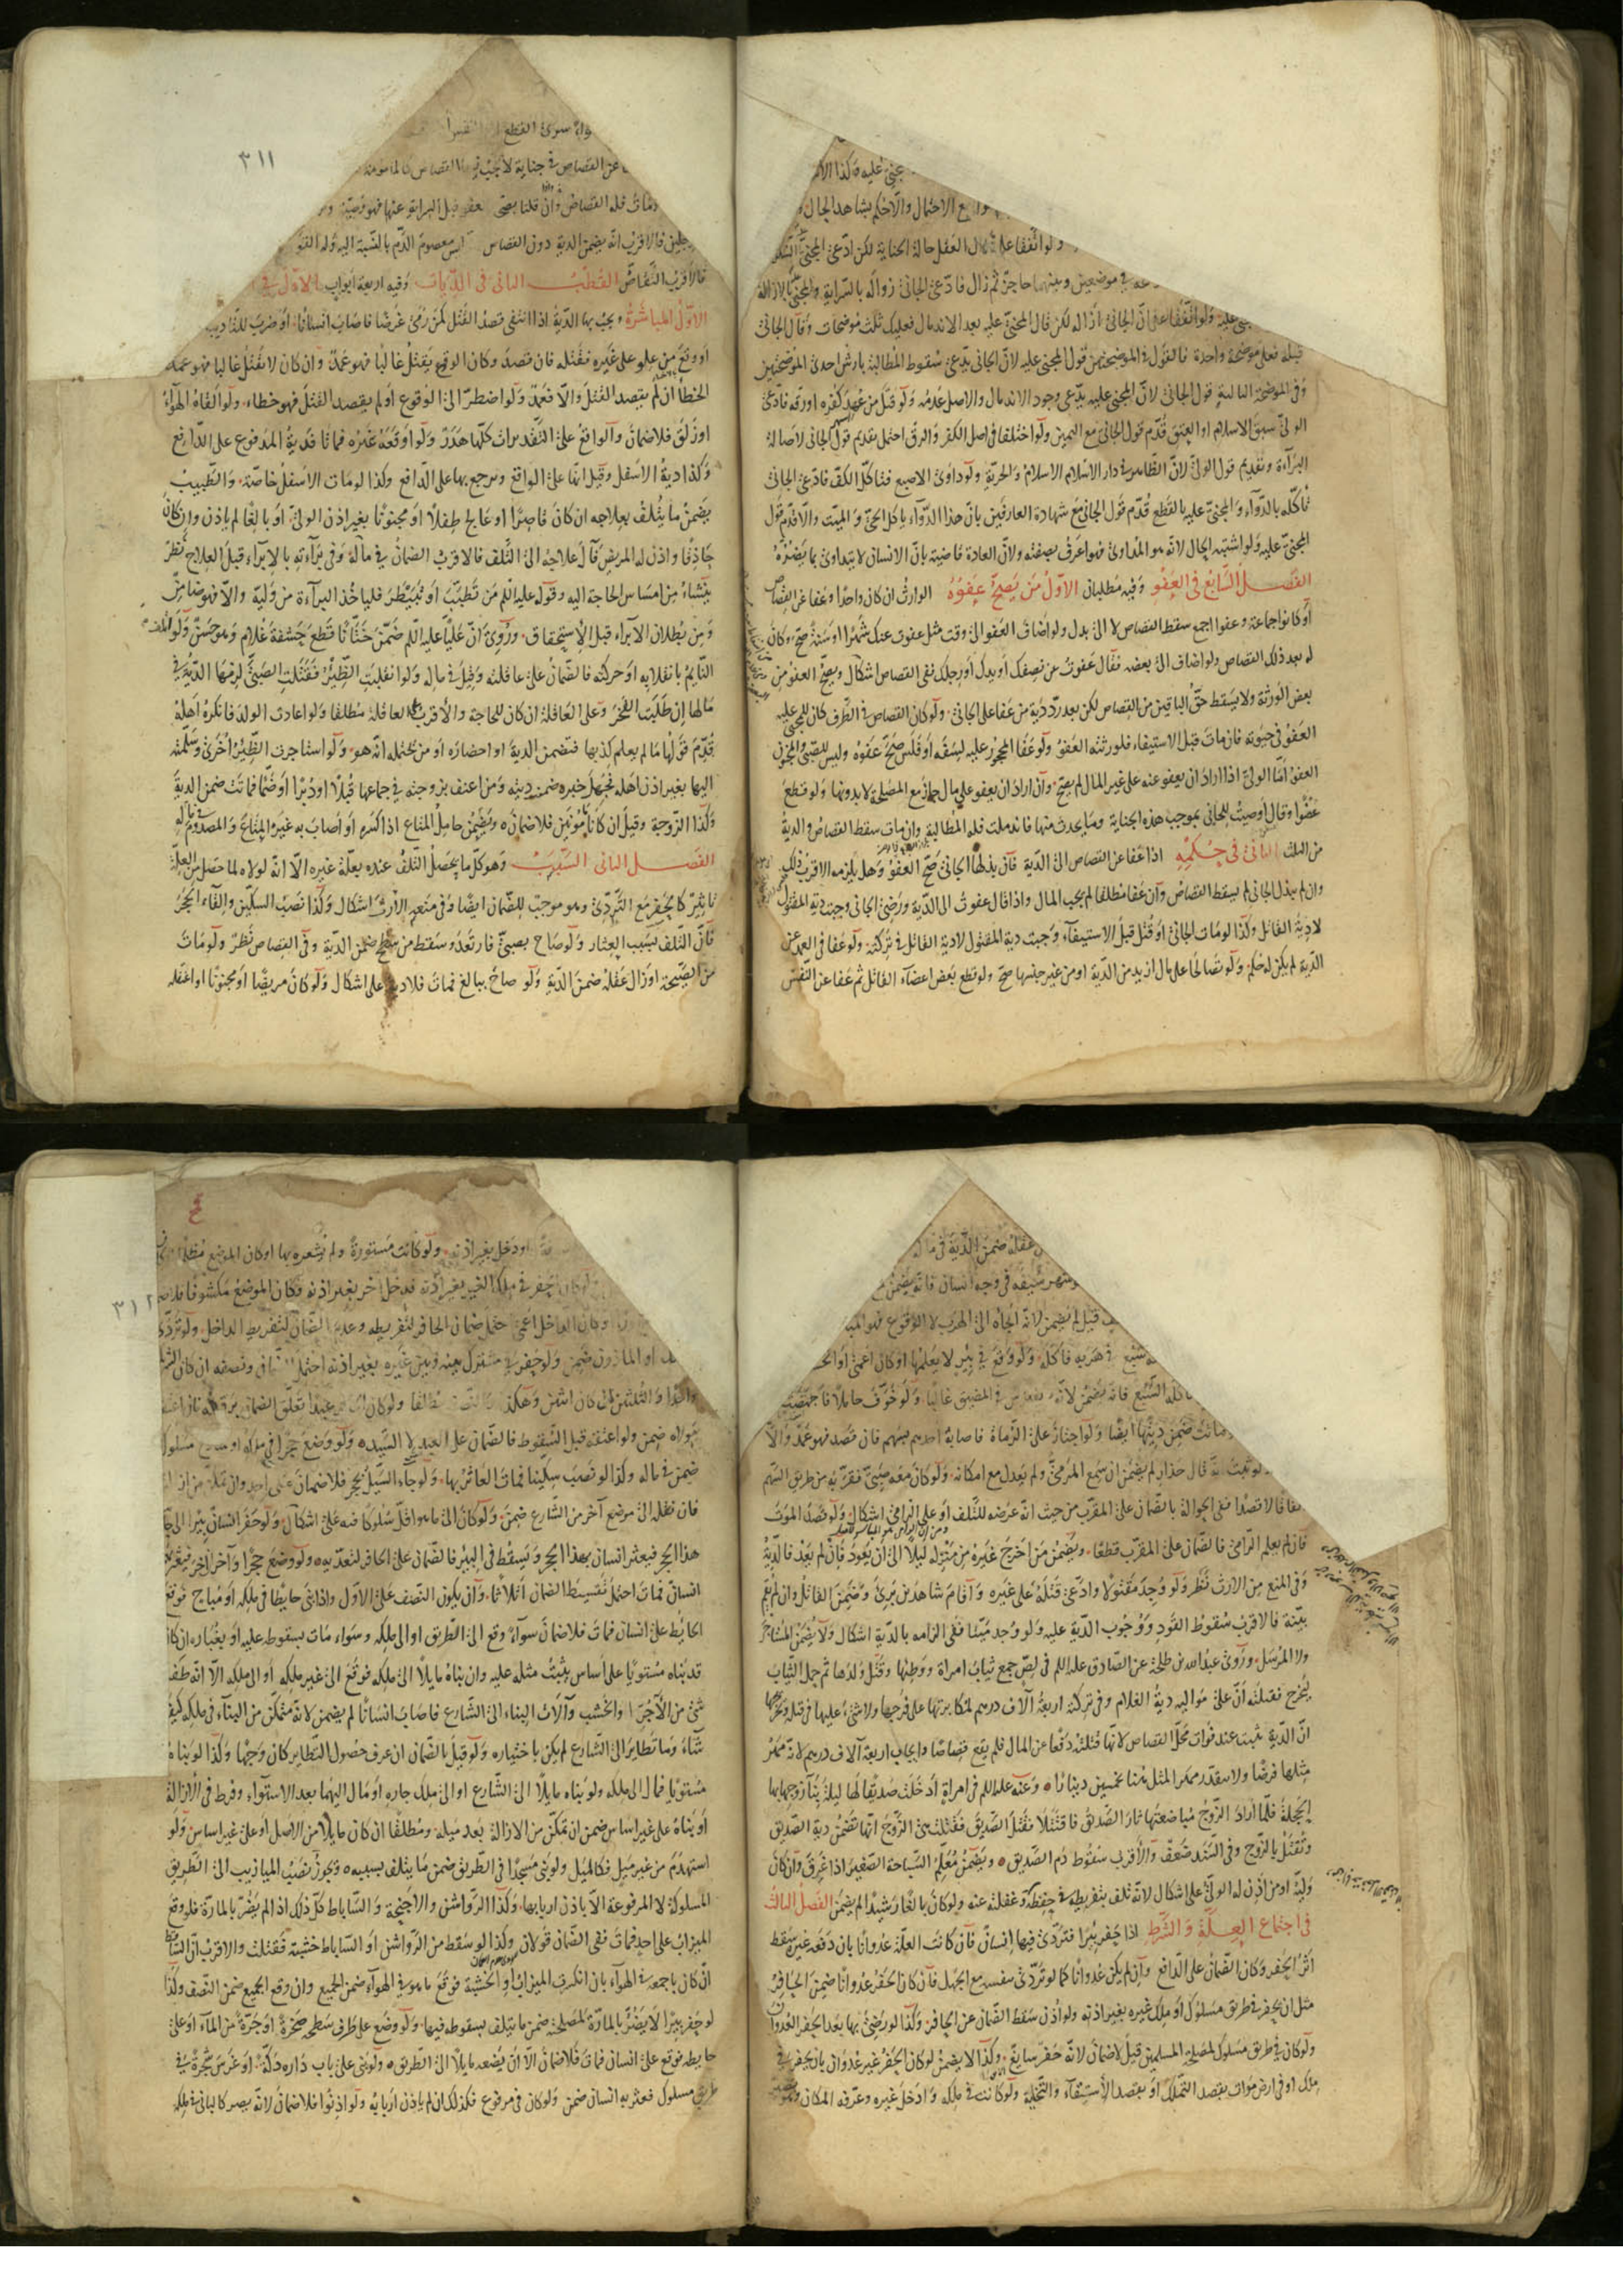 جنى عليه وكذا الا
مع الاحتمال والا حكم بشاهد الحال
ولو اتفقا على زوال العقل حالة الجناية لكن ادعى المجنى
في موضعين وبينهما حاجز ثم زال فادعى الجاني زواله بالسراية والمجنى بالازالة
ولو اتفقا على ان الجاني ازاله لكن قال المجنى عليه بعد الاندمال فعليك ثلث موضحات وقال الجاني
قبله فعلى موضحة واحدة فالقول في الموضحتين قول المجنى عليه لان الجاني يدعى سقوط المطالبة بارش احدى الموضحتين
وفي الموضحة الثالثة قول الجاني لان المجنى عليه يدعى وجود الاندمال والاصل عدمه ولو قتل من عهد كفره او رقه فادعى
الولى سبق الاسلام او العتق قدم قول الجاني مع اليمين ولو اختلفا في اصل الكفر والرق احتمل تقديم قول الجاني لاصالة
البرآءة وتقديم قول الولى لان الظاهر في دار الاسلام الاسلام والحرية ولو داوى الاصبع فتآكل الكف فادعى الجاني
تآكله بالدوآء والمجنى عليه بالقطع قدم قول الجاني مع شهادة العارفين بان هذا الدوآء يأكل الحى والميت والا قدم قول
المجنى عليه ولو اشتبه الحال لانه هو المداوى فهو اعرف بصفته ولان العادة قاضية بان الانسان لا يتداوى بما يضره
الفصل السابع في العفو وفيه مطلبان الاول من يصح عفوه الوارث ان كان واحدا وعفا عن القصاص
او كانوا جماعة وعفوا اجمع سقط القصاص لا الى بدل ولو اضاف العفو الى وقت مثل عفوت عنك شهرا او سنة صح وكان
له بعد ذلك القصاص ولو اضاف الى بعضه فقال عفوت عن نصفك او يدك او رجلك ففى القصاص اشكال ويصح العفو من
بعض الورثة ولا يسقط حق الباقين من القصاص لكن بعد رد دية من عفا على الجاني ولو كان القصاص في الطرف كان للمجنى عليه
العفو في حيوته فان مات قبل الاستيفاء فلورثته العفو ولو عفا المحجور عليه لسفه او فلس صح عفوه وليس للصبى والمجنون
العفو اما الولى اذا اراد ان يعفو عنه على غير المال لم يصح وان اراد ان يعفو على مال جاز مع المصلحة لا بدونها ولو قطع
عضوا وقال اوصيت للجاني بموجب هذه الجناية وما يحدث منها فاندملت فله المطالبة وان مات سقط القصاص والدية
من الثلث الثاني في حكمه اذا عفا عن القصاص الى الدية فان بذلها الجاني صح العفو وهل يلزمه الاقرب ذلك
وان لم يبذل الجاني لم يسقط القصاص وان عفا مطلقا لم يجب المال واذا قال عفوت الى الدية ورضى الجاني وجبت دية المقتول
لا دية القاتل وكذا لو مات الجاني او قتل قبل الاستيفآء وجبت دية المقتول لا دية القاتل في تركته ولو عفا في العمد عن
الدية لم يكن له حكم ولو تصالحا على مال ازيد من الدية او من غير جنسها صح ولو قطع بعض اعضآء القاتل ثم عفا عن النفس
٣١١
سرى القطع
عن القصاص في جناية لا يجب فيها القصاص كالمأمومة
ومات فله القصاص وان قلنا يصح عفوه قبل البرا
فالاقرب انه يضمن الدية دون القصاص معصوم الدم بالنسبة اليه
فالاقرب التقاص القطب الثاني في الديات وفيه اربعة ابواب الاول في
الاول المباشرة ويجب بها الدية اذا انتفى قصد القتل كمن رمى غرضا فاصاب انسانا او ضرب للتأديب
او وقع من علو على غيره فقتله فان قصد وكان الوقوع يقتل غالبا فهو عمد وان كان لا يقتل غالبا فهو عمد
الخطأ ان لم يقصد القتل والا فعمد ولو اضطر الى الوقوع او لم يقصد القتل فهو خطاء ولو القاه الهوآء
او زلق فلا ضمان والواقع على التقديرات كلها هدر ولو اوقعه غيره فماتا فدية المدفوع على الدافع
وكذا دية الاسفل وقيل انها على الواقع ويرجع بها على الدافع وكذا لو مات الاسفل خاصة والطبيب
يضمن ما يتلف بعلاجه ان كان قاصرا او عالج طفلا او مجنونا بغير اذن الولى او بالغا لم يأذن وان كان
حاذقا واذن له المريض فآل علاجه الى التلف فالاقرب الضمان في ماله وفي برآءته بالابرآء قبل العلاج نظر
ينشاء من امساس الحاجة اليه وقوله عليه السلم من تطبب او تبيطر فليأخذ البرآءة من وليه والا فهو ضامن
ومن بطلان الابراء قبل الاستحقاق وروى ان عليا عليه السلم ضمن ختانا قطع حشفة غلام وهو حسن ولو اتلف
النايم بانقلابه او حركته فالضمان على عاقلته وقيل في ماله ولو انقلبت الظئر فقتلت الصبى لزمها الدية في
مالها ان طلبت الفخر وعلى العاقلة ان كان للحاجة والاقرب العاقلة مطلقا ولو اعادت الولد فانكره اهله
قدم قولها ما لم يعلم كذبها فتضمن الدية او احضاره او من يحتمله انه هو ولو استاجرت الظئر اخرى وسلمته
اليها بغير اذن اهله فجهل خبره ضمنت ديته ومن اعنف بزوجته في جماعها قبلا او دبرا او ضما فماتت ضمن الدية
وكذا الزوجة وقيل ان كانا مأمونين فلا ضمان ويضمن حامل المتاع اذا كسره او اصاب به غيره المتاع والمصدوم في ماله
الفصل الثاني السبب وهو كل ما يحصل التلف عنده بعلة غيره الا انه لولاه لما حصل من العلة
تأثير كالحفر مع التردى وهو موجب للضمان ايضا وفي منعه الارث اشكال وكذا نصب السكين والقاء الحجر
فان التلف بسبب العثار ولو صاح بصبى فارتعد وسقط من سطح ضمن الدية وفي القصاص نظر ولو مات
من الصيحة او زال عقله ضمن الدية ولو صاح ببالغ فمات فلا دية على اشكال ولو كان مريضا او مجنونا او اغفله
عقله ضمن الدية في ماله
شهر سيفه في وجه انسان فانه يضمن
قيل لم يضمن لانه الجأه الى الهرب لا الوقوع فهو المباشر
سبع في هربه فأكله ولو وقع في بئر لا يعلمها او كان اعمى او انخسف
فأكله السبع فانه يضمن لانه يفترس في المضيق غالبا ولو خوف حاملا فاجهضت
ماتت ضمن ديتها ايضا ولو اجتاز على الرماة فاصابه احدهم بسهم فان قصد فهو عمد والا
لو ثبت انه قال حذار لم يضمن ان سمع المرمى ولم يعدل مع امكانه ولو كان معه صبى فقربه من طريق السهم
اتفاقا لا قصدا ففى الحوالة بالضمان على المقرب من حيث انه عرضه للتلف او على الرامى اشكال ولو قصد الموت
فان لم يعلم الرامى فالضمان على المقرب قطعا ويضمن من اخرج غيره من منزله ليلا الى ان يعود فان لم يعد فالدية
وفي المنع من الارث نظر ولو وجد مقتولا وادعى قتله على غيره واقام شاهدين برئ وضمن القاتل وان لم يقم
بينة فالاقرب سقوط القود ووجوب الدية عليه ولو وجد ميتا ففى الزامه بالدية اشكال ولا يضمن المستاجر
ولا المرسل وروى عبد الله بن طلحة عن الصادق عليه السلم في لص جمع ثياب امرأة ووطئها وقتل ولدها ثم حمل الثياب
ليخرج فقتلته ان على مواليه دية الغلام وفي تركته اربعة آلاف درهم لمكابرتها على فرجها ولا شئ عليها في قتله
ان الدية تثبت عند فوات محل القصاص لانها قتلته دفعا عن المال فلم يقع قصاصا وايجاب اربعة آلاف درهم لانه مهر
مثلها فرضا ولا يتقدر مهر المثل هنا بخمسين دينارا وعنه عليه السلم في امرأة ادخلت صديقا لها ليلة بنآء زوجها بها
الحجلة فلما اراد الزوج مباضعتها ثار الصديق فاقتتلا فقتل الصديق فقتلت هى الزوج انها تضمن دية الصديق
وتقتل بالزوج وفي السند ضعف والاقرب سقوط دم الصديق ويضمن معلم السباحة الصغير اذا غرق وان كان
وليه او من اذن له الولى على اشكال لانه تلف بتفريطه في حفظه وغفلته عنه ولو كان بالغا رشيدا لم يضمن الفصل الثالث
في اجتماع العلة والشرط اذا حفر بئرا فتردى فيها انسان فان كانت العلة عدوانا بان دفعه غيره سقط
اثر الحفر وكان الضمان على الدافع وان لم يكن عدوانا كما لو تردى بنفسه مع الجهل فان كان الحفر عدوانا ضمن الحافر
مثل ان يحفر في طريق مسلوك او ملك غيره بغير اذنه ولو اذن سقط الضمان عن الحافر وكذا لو رضى بها بعد الحفر العدوان
ولو كان في طريق مسلوك لمصلحة المسلمين قيل لا ضمان لانه حفر سايغ وكذا لا يضمن لو كان الحفر غير عدوان بان يحفر في
ملك او في ارض موات بقصد التملك او بقصد الاستسقآء والتخلية ولو كانت في ملكه وادخل غيره وعرفه المكان
٣١٢
او دخل بغير اذنه ولو كانت مستورة ولم يشعره بها او كان الموضع مظلما
ولو كان الحفر في ملك الغير بغير اذنه فدخل آخر بغير اذنه وكان الموضع مكشوفا فلا ضمان
وكان الداخل اعمى احتمل ضمان الحافر لتفريطه وعدم الضمان لتفريط الداخل ولو تردى
او المأذون ضمن ولو حفر في مشترك بينه وبين غيره بغير اذنه احتمل الضمان ونصفه ان كان الشريك
واحدا والثلثين ان كان اثنين وهكذا مطلقا ولو كان الحافر عبدا تعلق الضمان برقبته
مولاه ضمن ولو اعتقه قبل السقوط فالضمان على العبد لا السيد ولو وضع حجرا في ملكه
ضمن في ماله وكذا لو نصب سكينا فمات العاثر بها ولو جاء السيل بحجر فلا ضمان على احد وان تمكن من ازالته
فان نقله الى موضع آخر من الشارع ضمن ولو كان الى ما هو اقل سلوكا منه على اشكال ولو حفر انسان بئرا الى جانب
هذا الحجر فيعثر انسان بهذا الحجر ويسقط في البئر فالضمان على الحافر لتعديه ولو وضع حجرا وآخران آخر فيعثر بهما
انسان فمات احتمل تقسيط الضمان اثلاثا وان يكون النصف على الاول واذا بنى حايطا في ملكه او مباح فوقع
الحايط على انسان فمات فلا ضمان سوآء وقع الى الطريق او الى ملكه وسواء مات بسقوطه عليه او بغباره ان كان
قد بناه مستويا على اساس يثبت مثله عليه وان بناه مايلا الى ملكه فوقع الى غير ملكه او الى ملكه الا انه طفر
شئ من الآجر او الخشب وآلات البناء الى الشارع فاصاب انسانا لم يضمن لانه متمكن من البنآء في ملكه كيف
شآء وما تطاير الى الشارع لم يكن باختياره ولو قيل بالضمان ان عرف حصول التطاير كان وجها وكذا لو بناه
مستويا فمال الى ملكه ولو بناه مايلا الى الشارع او الى ملك جاره او مال اليهما بعد الاستوآء وفرط في الازالة
او بناه على غير اساس ضمن ان تمكن من الازالة بعد ميله ومطلقا ان كان مايلا من الاصل او على غير اساس ولو
استهدم من غير ميل فكالميل ولو بنى مسجدا في الطريق ضمن ما يتلف بسببه ويجوز نصب الميازيب الى الطريق
المسلوكة لا المرفوعة الا باذن اربابها وكذا الرواشن والاجنحة والساباط كل ذلك اذا لم يضر بالمارة فلو وقع
الميزاب على احد فمات ففى الضمان قولان وكذا لو سقط من الرواشن او الساباط خشبة فقتلت والاقرب ان الساقط
ان كان باجمعه في الهوآء بان انكسرت الميزاب او الخشبة فوقع ما هو في الهوآء ضمن الجميع وان وقع الجميع ضمن النصف وكذا
لو حفر بئرا لا يضر بالمارة لمصلحته ضمن ما يتلف بسقوطه فيها ولو وضع على طرف سطحه صخرة او جرة من المآء او على
حايطه فوقع على انسان فمات فلا ضمان الا ان يضعه مايلا الى الطريق ولو بنى على باب داره دكة او غرس شجرة في
طريق مسلوك فعثر به انسان ضمن ولو كان في مرفوع فكذلك ان لم يأذن اربابه ولو اذنوا فلا ضمان لانه يصير كالبانى في ملكه